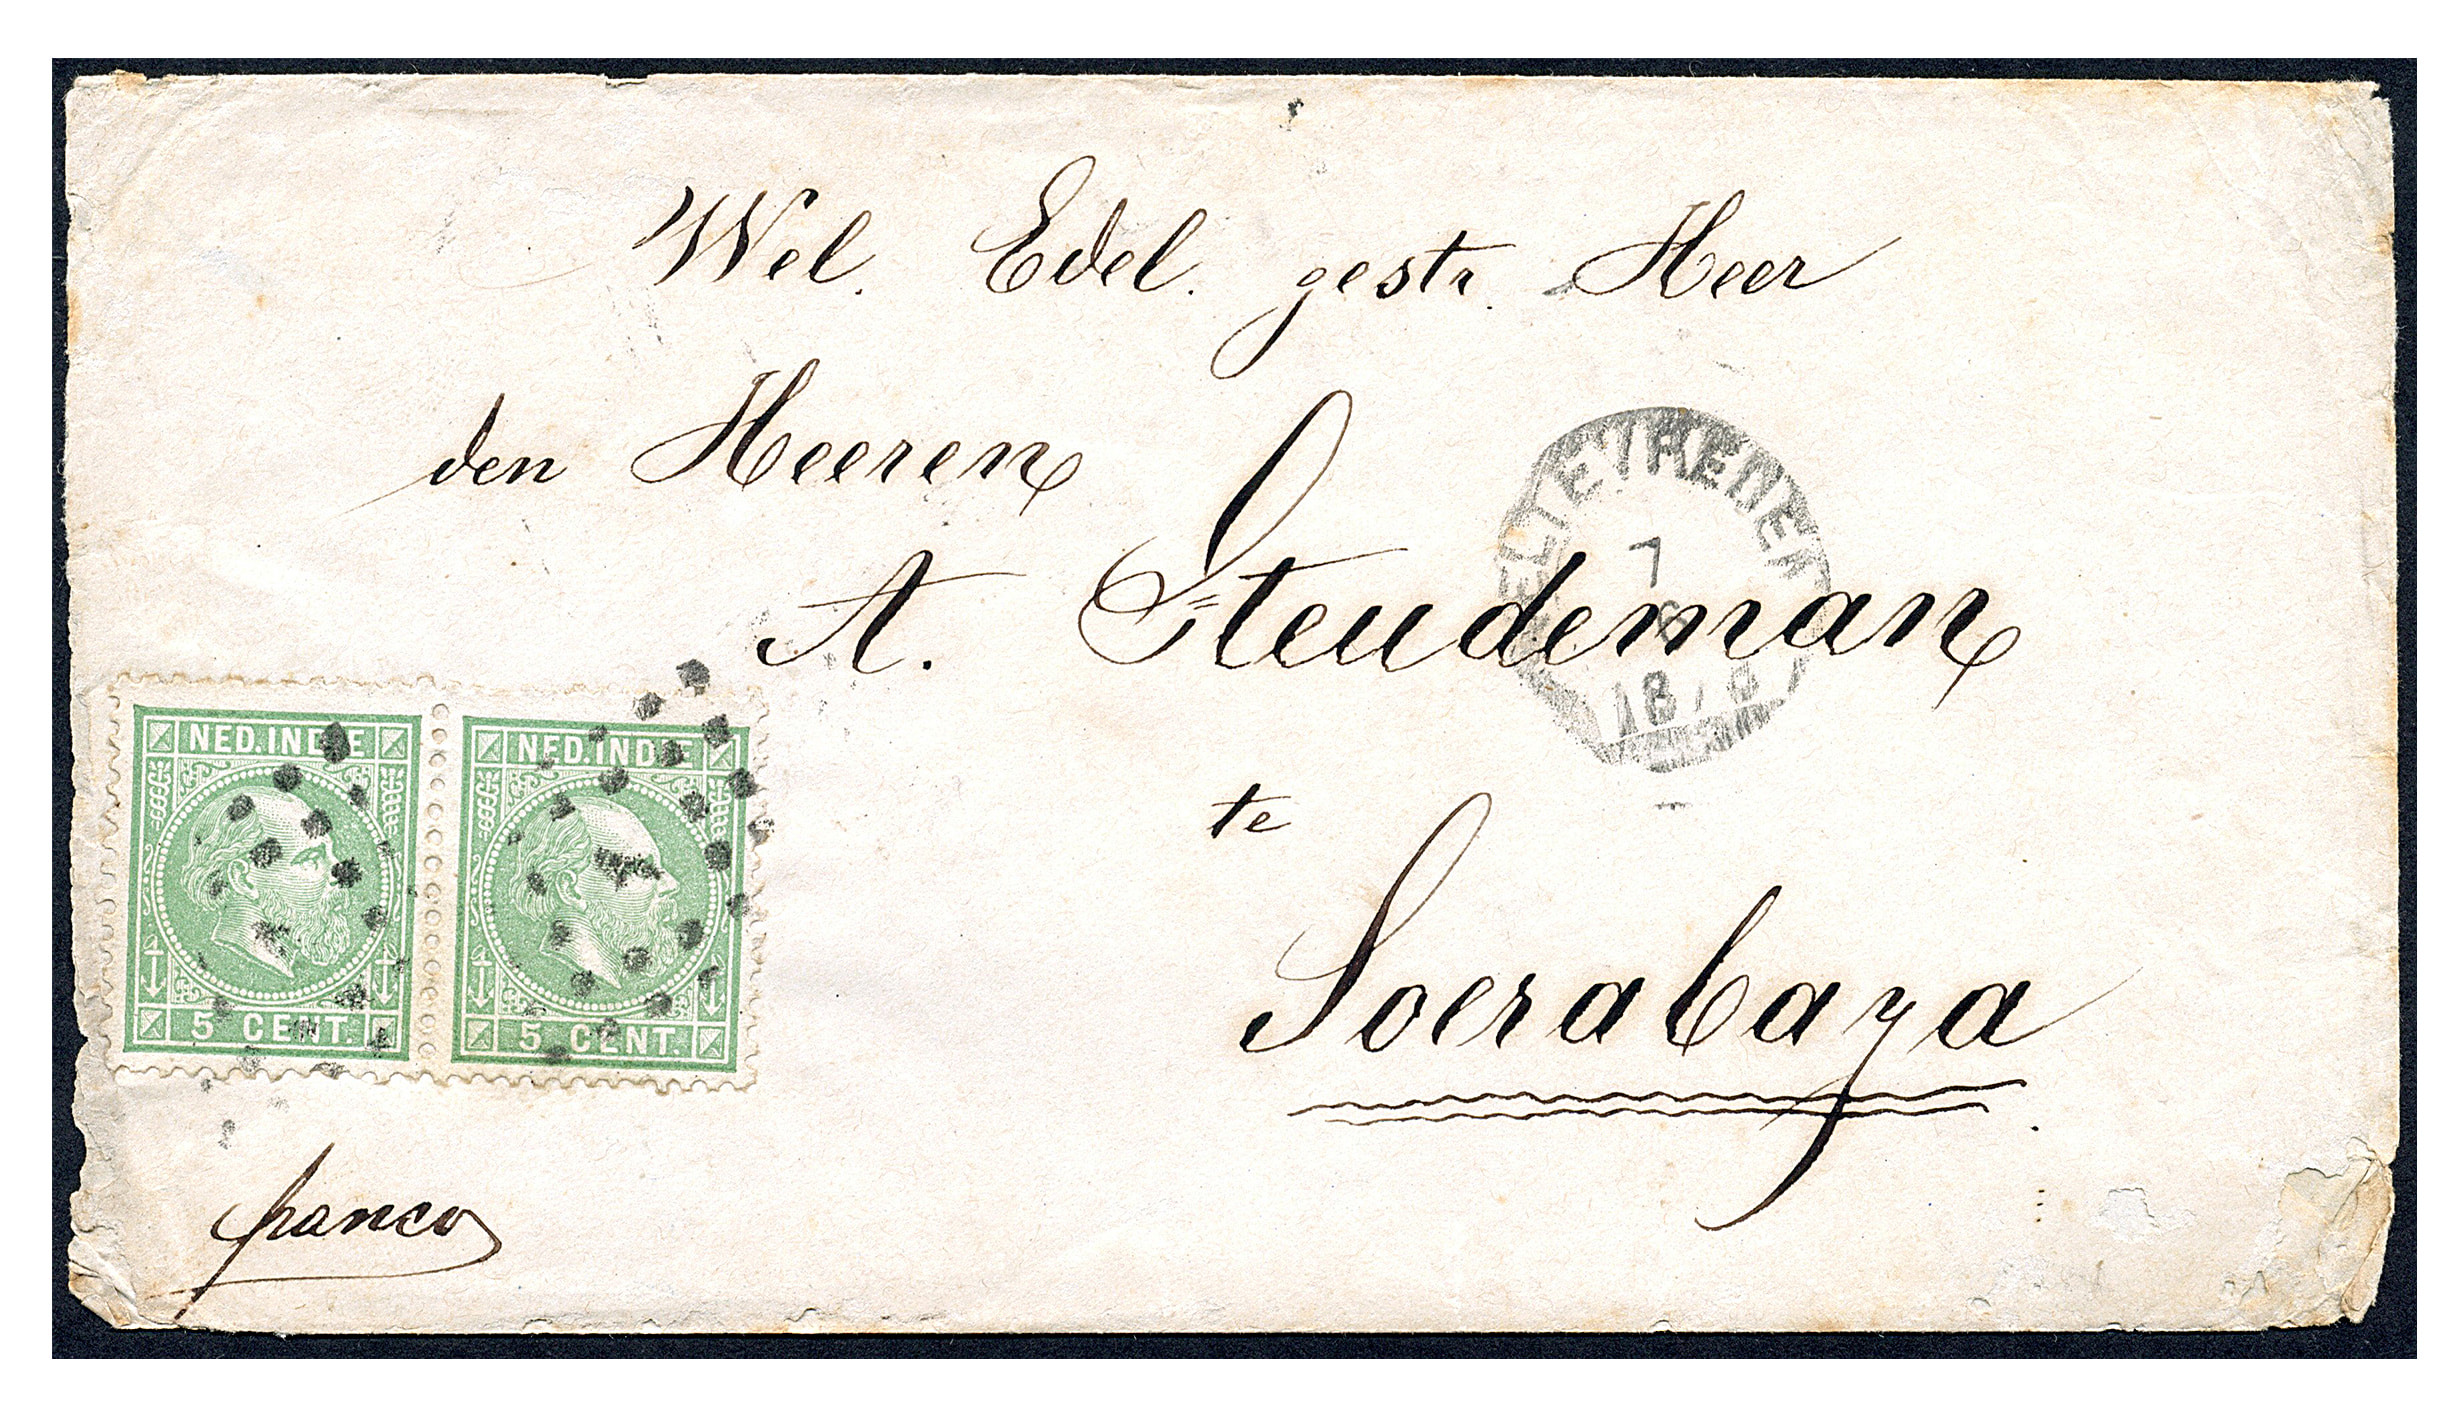 Wel. Edel. gestr. Heer
den Heeren
A. Steudeman
te
Soerabaya
franco
NED. INDIE
5 CENT.
NED. INDIE
5 CENT.
7